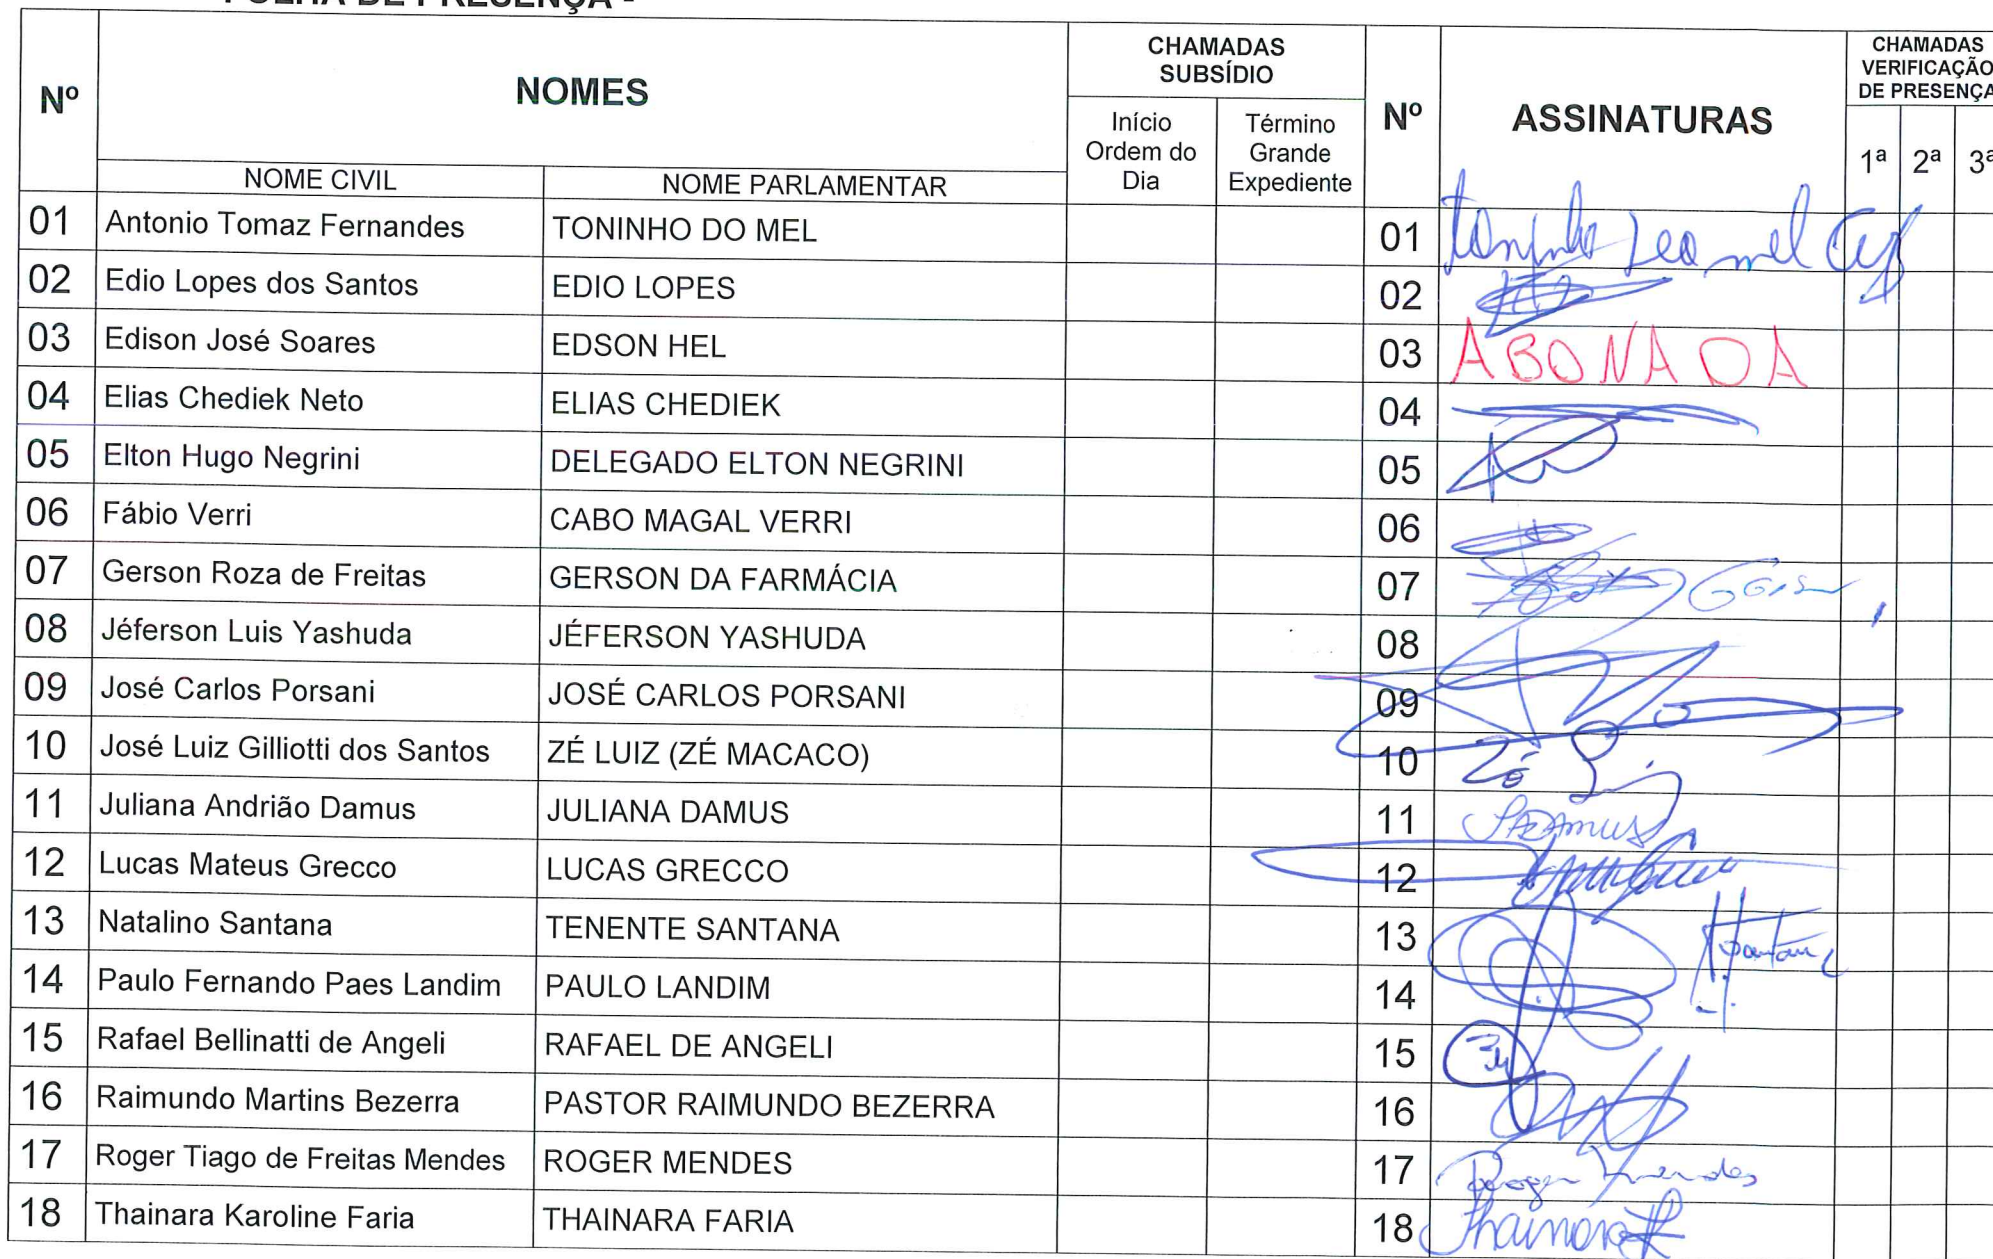 FOLHA DE PRESENÇA -
Nº NOMES CHAMADAS SUBSÍDIO Nº ASSINATURAS CHAMADAS VERIFICAÇÃO DE PRESENÇA
NOME CIVIL NOME PARLAMENTAR Início Ordem do Dia Término Grande Expediente 1ª 2ª 3ª
01 Antonio Tomaz Fernandes TONINHO DO MEL 01 toninho do mel
02 Edio Lopes dos Santos EDIO LOPES 02
03 Edison José Soares EDSON HEL 03 ABONADA
04 Elias Chediek Neto ELIAS CHEDIEK 04
05 Elton Hugo Negrini DELEGADO ELTON NEGRINI 05
06 Fábio Verri CABO MAGAL VERRI 06
07 Gerson Roza de Freitas GERSON DA FARMÁCIA 07
08 Jéferson Luis Yashuda JÉFERSON YASHUDA 08
09 José Carlos Porsani JOSÉ CARLOS PORSANI 09
10 José Luiz Gilliotti dos Santos ZÉ LUIZ (ZÉ MACACO) 10 Zé
11 Juliana Andrião Damus JULIANA DAMUS 11 Damus
12 Lucas Mateus Grecco LUCAS GRECCO 12
13 Natalino Santana TENENTE SANTANA 13 Santana
14 Paulo Fernando Paes Landim PAULO LANDIM 14
15 Rafael Bellinatti de Angeli RAFAEL DE ANGELI 15
16 Raimundo Martins Bezerra PASTOR RAIMUNDO BEZERRA 16
17 Roger Tiago de Freitas Mendes ROGER MENDES 17 Roger Mendes
18 Thainara Karoline Faria THAINARA FARIA 18 Thainara